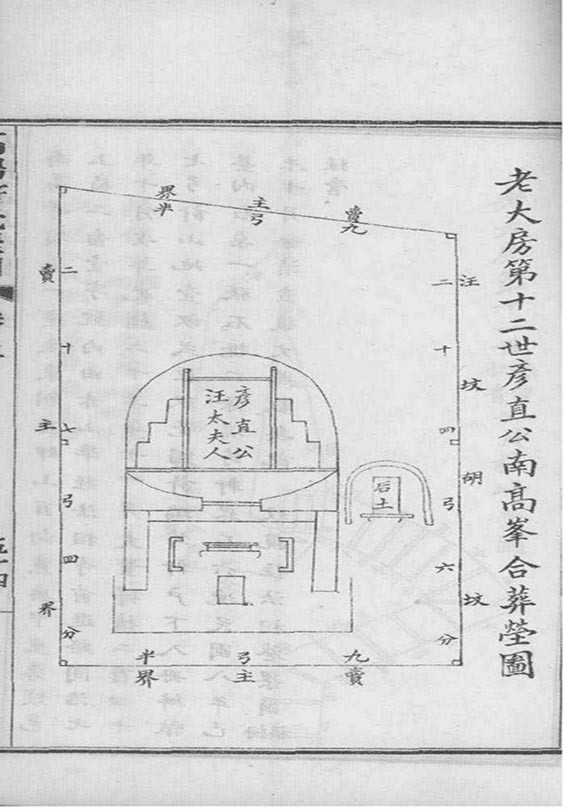 老大房第十二世彥直公南高峯合葬塋圖
汪坟胡坟
二十四弓六分
賣主界
九弓半
后土
彥直公
汪太夫人
九弓半
賣主界
二十七弓四分
賣主界